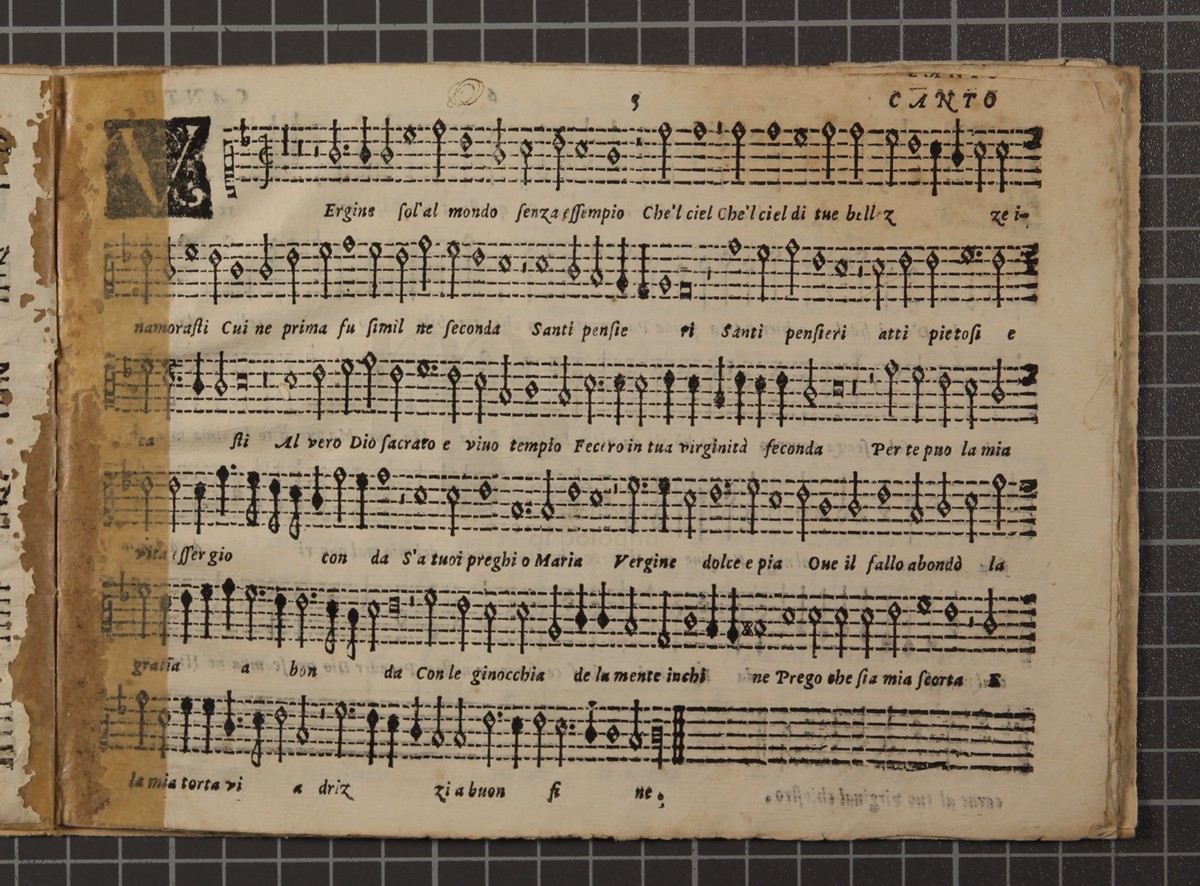 5 CANTO
V Ergine sol'al mondo senza essempio Che'l ciel Che'l ciel di tue bellez ze i-
namorasti Cui ne prima fu simil ne seconda Santi pensie ri Santi pensieri atti pietosi e
ca sti Al vero Dio sacrato e viuo tempio Fecero in tua virginità feconda Per te puo la mia
vita esser gio con da S'a tuoi preghi o Maria Vergine dolce e pia Oue il fallo abondò la
gratia a bon da Con le ginocchia de la mente inchi ne Prego che sia mia scorta E
la mia torta vi a driz zi a buon fi ne.